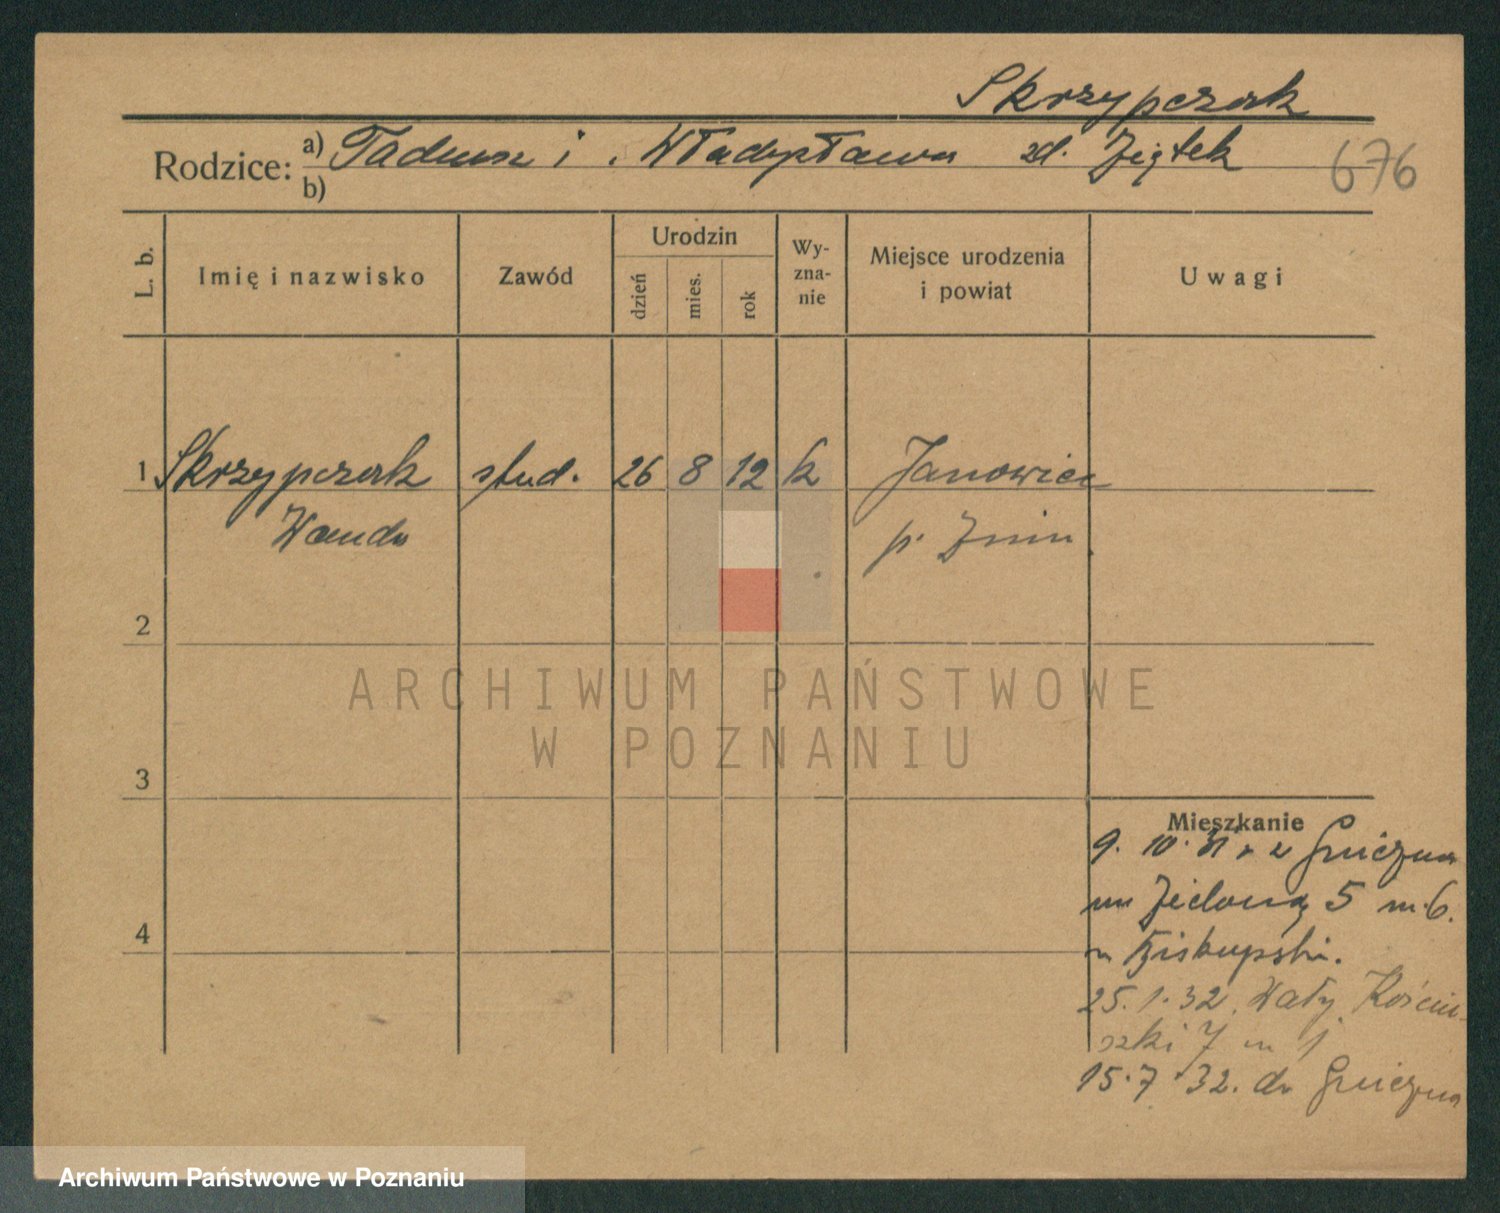 Skrzypczak
Rodzice: a) Tadeusz i Władysława zd. Ziętek
b)
676
L. b.
Imię i nazwisko
Zawód
Urodzin
dzień
mies.
rok
Wy-
zna-
nie
Miejsce urodzenia
i powiat
Uwagi
1 Skrzypczak stud. 26 8 12 k Janowiec
Wanda p. Żnin
2
ARCHIWUM PAŃSTWOWE
W POZNANIU
3
Mieszkanie
9. 10. 31 z Gniezna
na Zieloną 5 m. 6.
u Biskupski.
4
25. 1. 32. Wały Kościu-
szki 7 m 1
15. 7. 32. do Gniezna
Archiwum Państwowe w Poznaniu